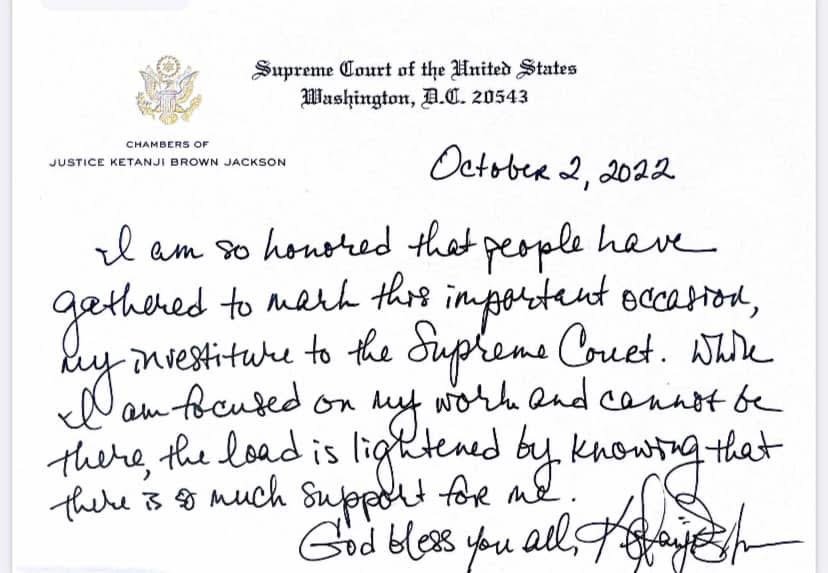 Supreme Court of the United States
Washington, D.C. 20543
CHAMBERS OF
JUSTICE KETANJI BROWN JACKSON
October 2, 2022
I am so honored that people have
gathered to mark this important occasion,
my investiture to the Supreme Court. While
I am focused on my work and cannot be
there, the load is lightened by knowing that
there is so much support for me.
God bless you all,